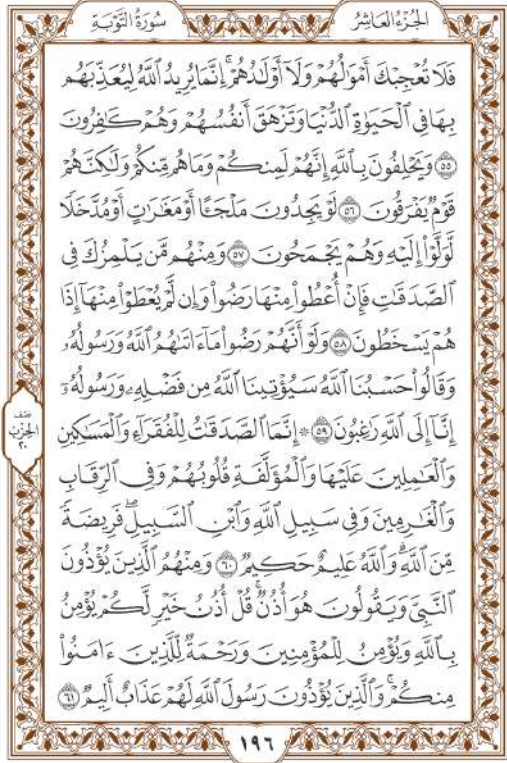 الجُزْءُ العَاشِرُ
سُورَةُ التَّوْبَةِ
فَلَا تُعْجِبْكَ أَمْوَٰلُهُمْ وَلَآ أَوْلَٰدُهُمْ ۚ إِنَّمَا يُرِيدُ ٱللَّهُ لِيُعَذِّبَهُم
بِهَا فِي ٱلْحَيَوٰةِ ٱلدُّنْيَا وَتَزْهَقَ أَنفُسُهُمْ وَهُمْ كَٰفِرُونَ
۝٥٥ وَيَحْلِفُونَ بِٱللَّهِ إِنَّهُمْ لَمِنكُمْ وَمَا هُم مِّنكُمْ وَلَٰكِنَّهُمْ
قَوْمٌ يَفْرَقُونَ ۝٥٦ لَوْ يَجِدُونَ مَلْجَـًٔا أَوْ مَغَٰرَٰتٍ أَوْ مُدَّخَلًا
لَّوَلَّوْا۟ إِلَيْهِ وَهُمْ يَجْمَحُونَ ۝٥٧ وَمِنْهُم مَّن يَلْمِزُكَ فِي
ٱلصَّدَقَٰتِ فَإِنْ أُعْطُوا۟ مِنْهَا رَضُوا۟ وَإِن لَّمْ يُعْطَوْا۟ مِنْهَآ إِذَا
هُمْ يَسْخَطُونَ ۝٥٨ وَلَوْ أَنَّهُمْ رَضُوا۟ مَآ ءَاتَىٰهُمُ ٱللَّهُ وَرَسُولُهُۥ
وَقَالُوا۟ حَسْبُنَا ٱللَّهُ سَيُؤْتِينَا ٱللَّهُ مِن فَضْلِهِۦ وَرَسُولُهُۥٓ
إِنَّآ إِلَى ٱللَّهِ رَٰغِبُونَ ۝٥٩ ۞ إِنَّمَا ٱلصَّدَقَٰتُ لِلْفُقَرَآءِ وَٱلْمَسَٰكِينِ
وَٱلْعَٰمِلِينَ عَلَيْهَا وَٱلْمُؤَلَّفَةِ قُلُوبُهُمْ وَفِي ٱلرِّقَابِ
وَٱلْغَٰرِمِينَ وَفِي سَبِيلِ ٱللَّهِ وَٱبْنِ ٱلسَّبِيلِ ۖ فَرِيضَةً
مِّنَ ٱللَّهِ ۗ وَٱللَّهُ عَلِيمٌ حَكِيمٌ ۝٦٠ وَمِنْهُمُ ٱلَّذِينَ يُؤْذُونَ
ٱلنَّبِيَّ وَيَقُولُونَ هُوَ أُذُنٌ ۚ قُلْ أُذُنُ خَيْرٍ لَّكُمْ يُؤْمِنُ
بِٱللَّهِ وَيُؤْمِنُ لِلْمُؤْمِنِينَ وَرَحْمَةٌ لِّلَّذِينَ ءَامَنُوا۟
مِنكُمْ ۚ وَٱلَّذِينَ يُؤْذُونَ رَسُولَ ٱللَّهِ لَهُمْ عَذَابٌ أَلِيمٌ ۝٦١
نصف
الحزب
٢٠
١٩٦